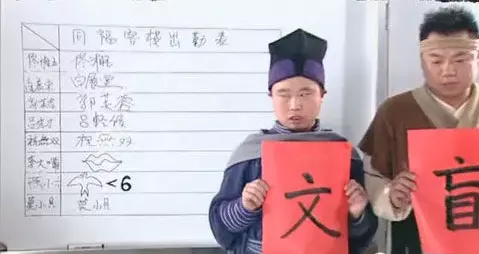 同福客栈出勤表
佟湘玉
白展堂 白展堂
郭芙蓉 郭芙蓉
吕秀才 吕轻侯
祝無双 祝無双
李大嘴
燕小六 <6
莫小贝 莫小贝
文盲